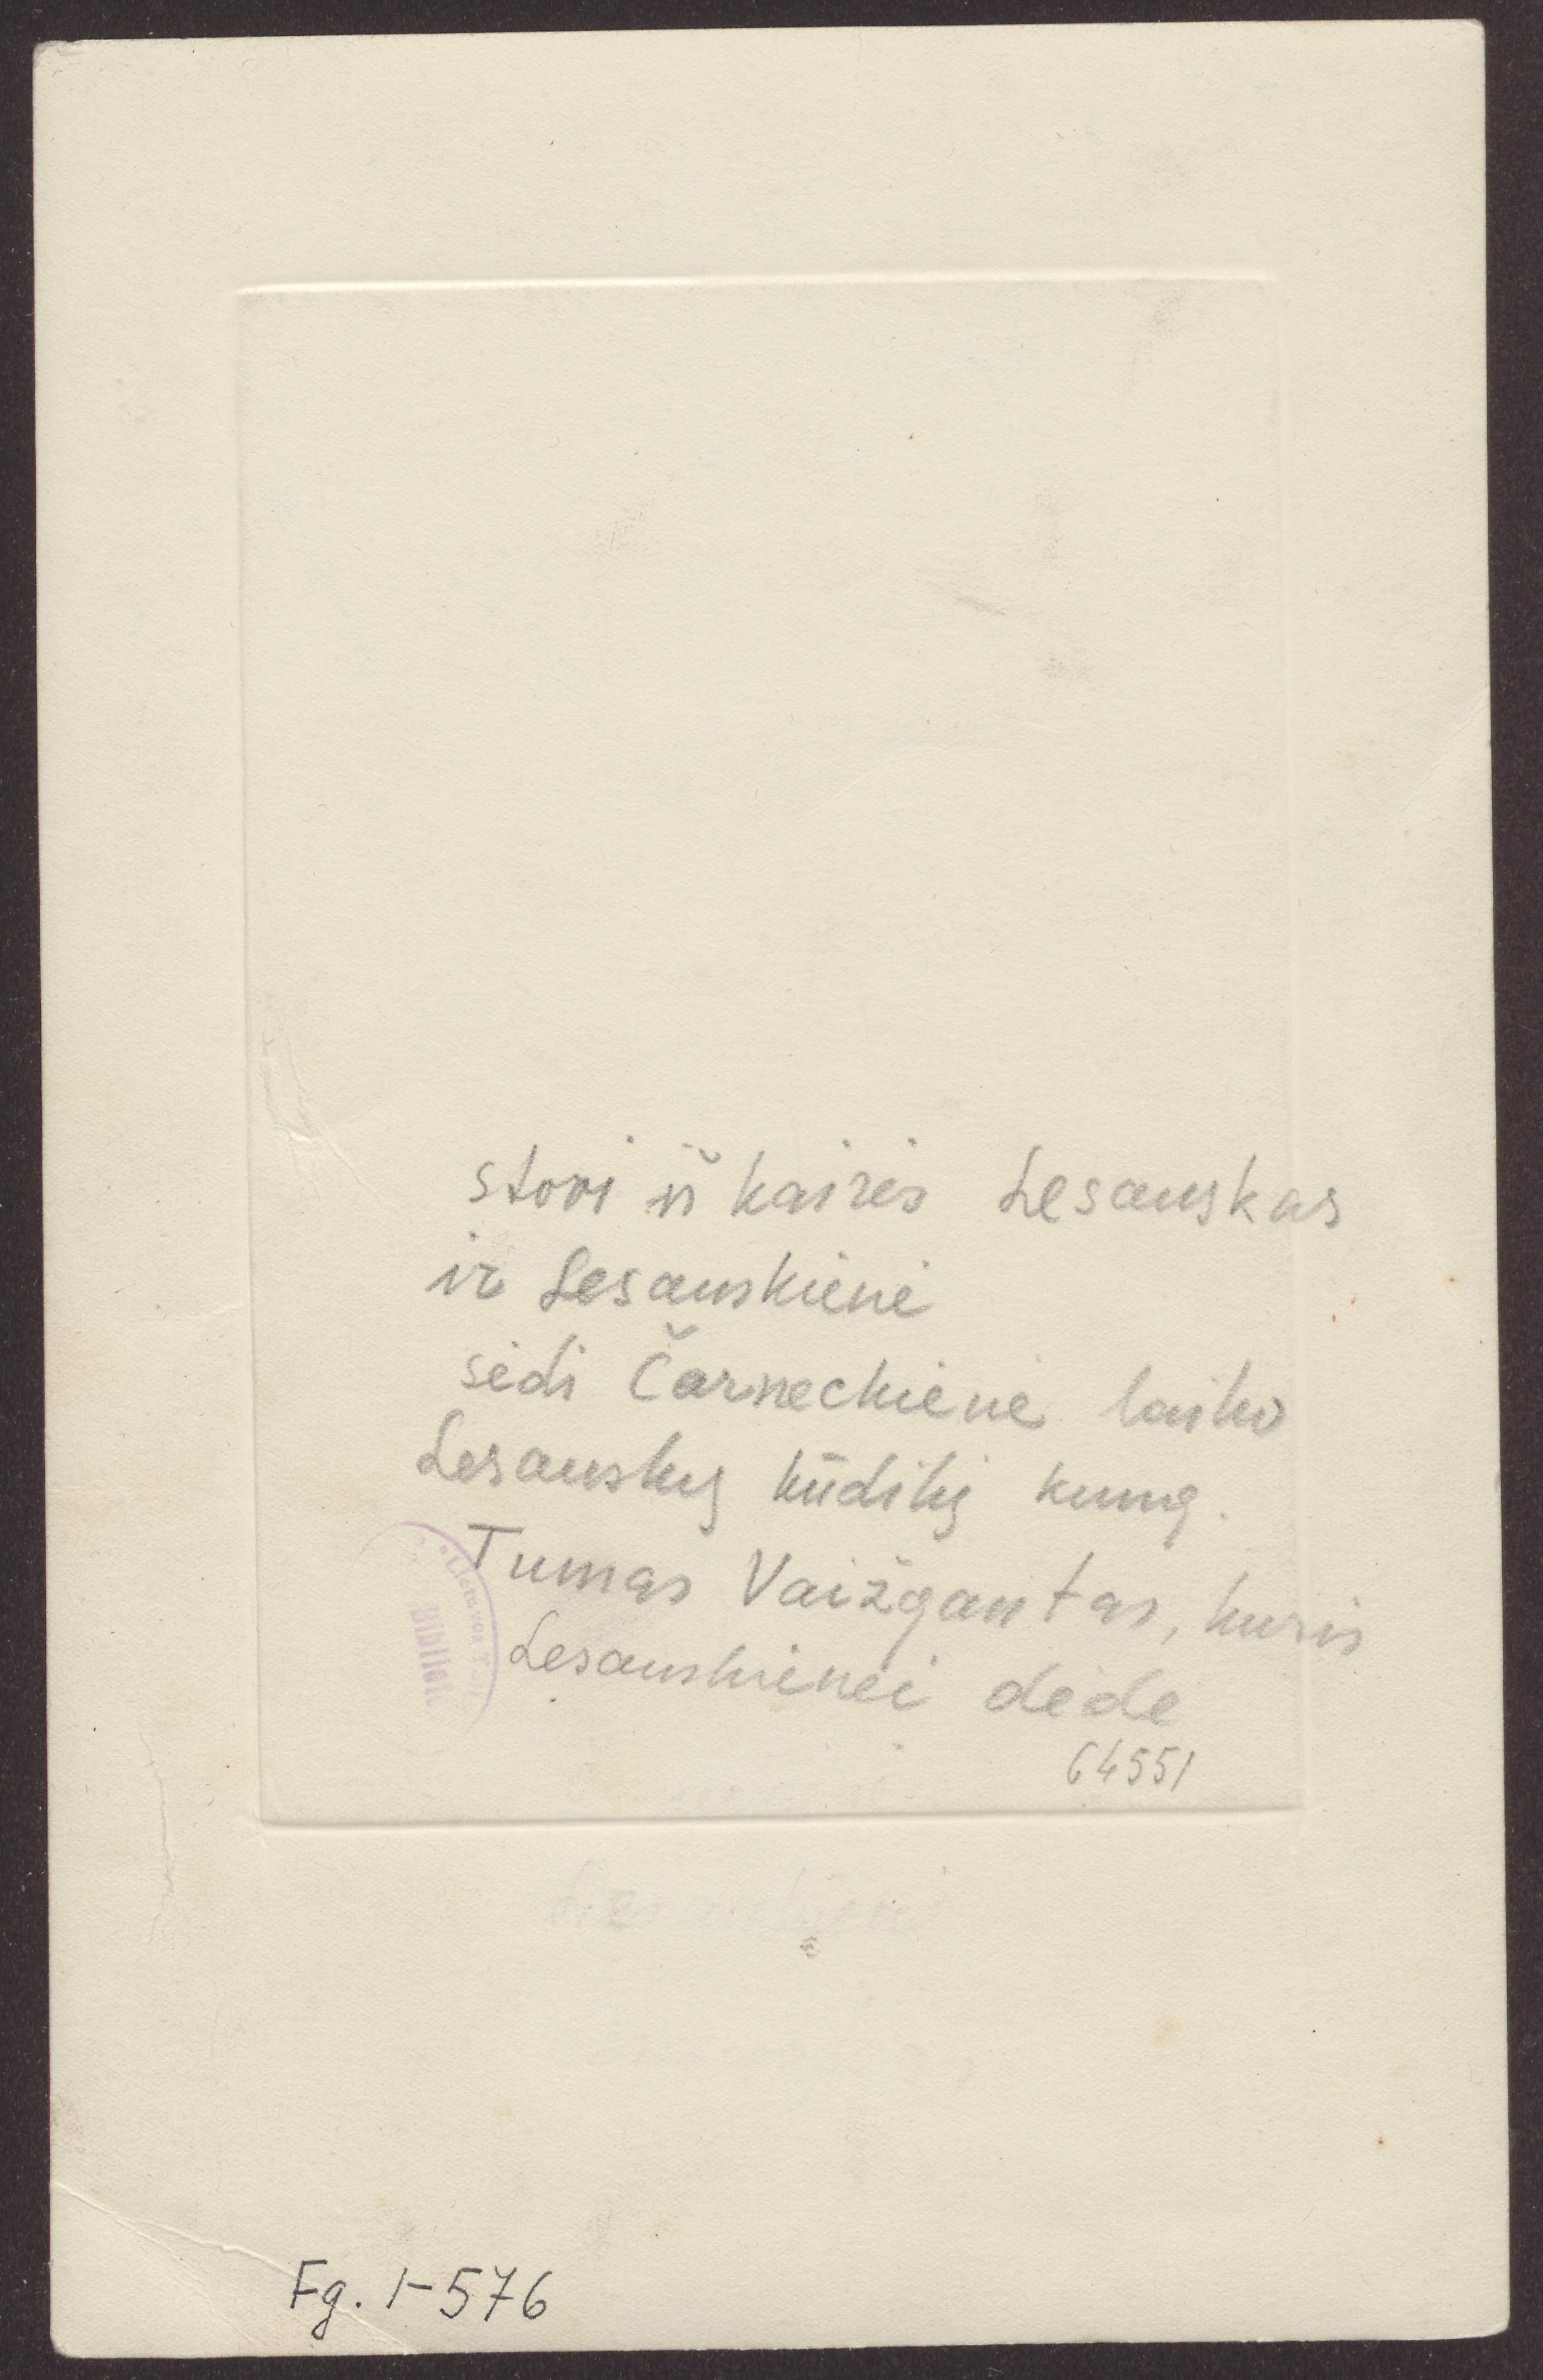 stovi iš kairės Lesauskas
ir Lesauskienė
sėdi Čarneckienė laiko
Lesauskų kūdikį kunig.
Tumas Vaižgantas, kuris
Lesauskienei dėdė
64551
"Lietuvos
Bibliot
Fg. 1-576